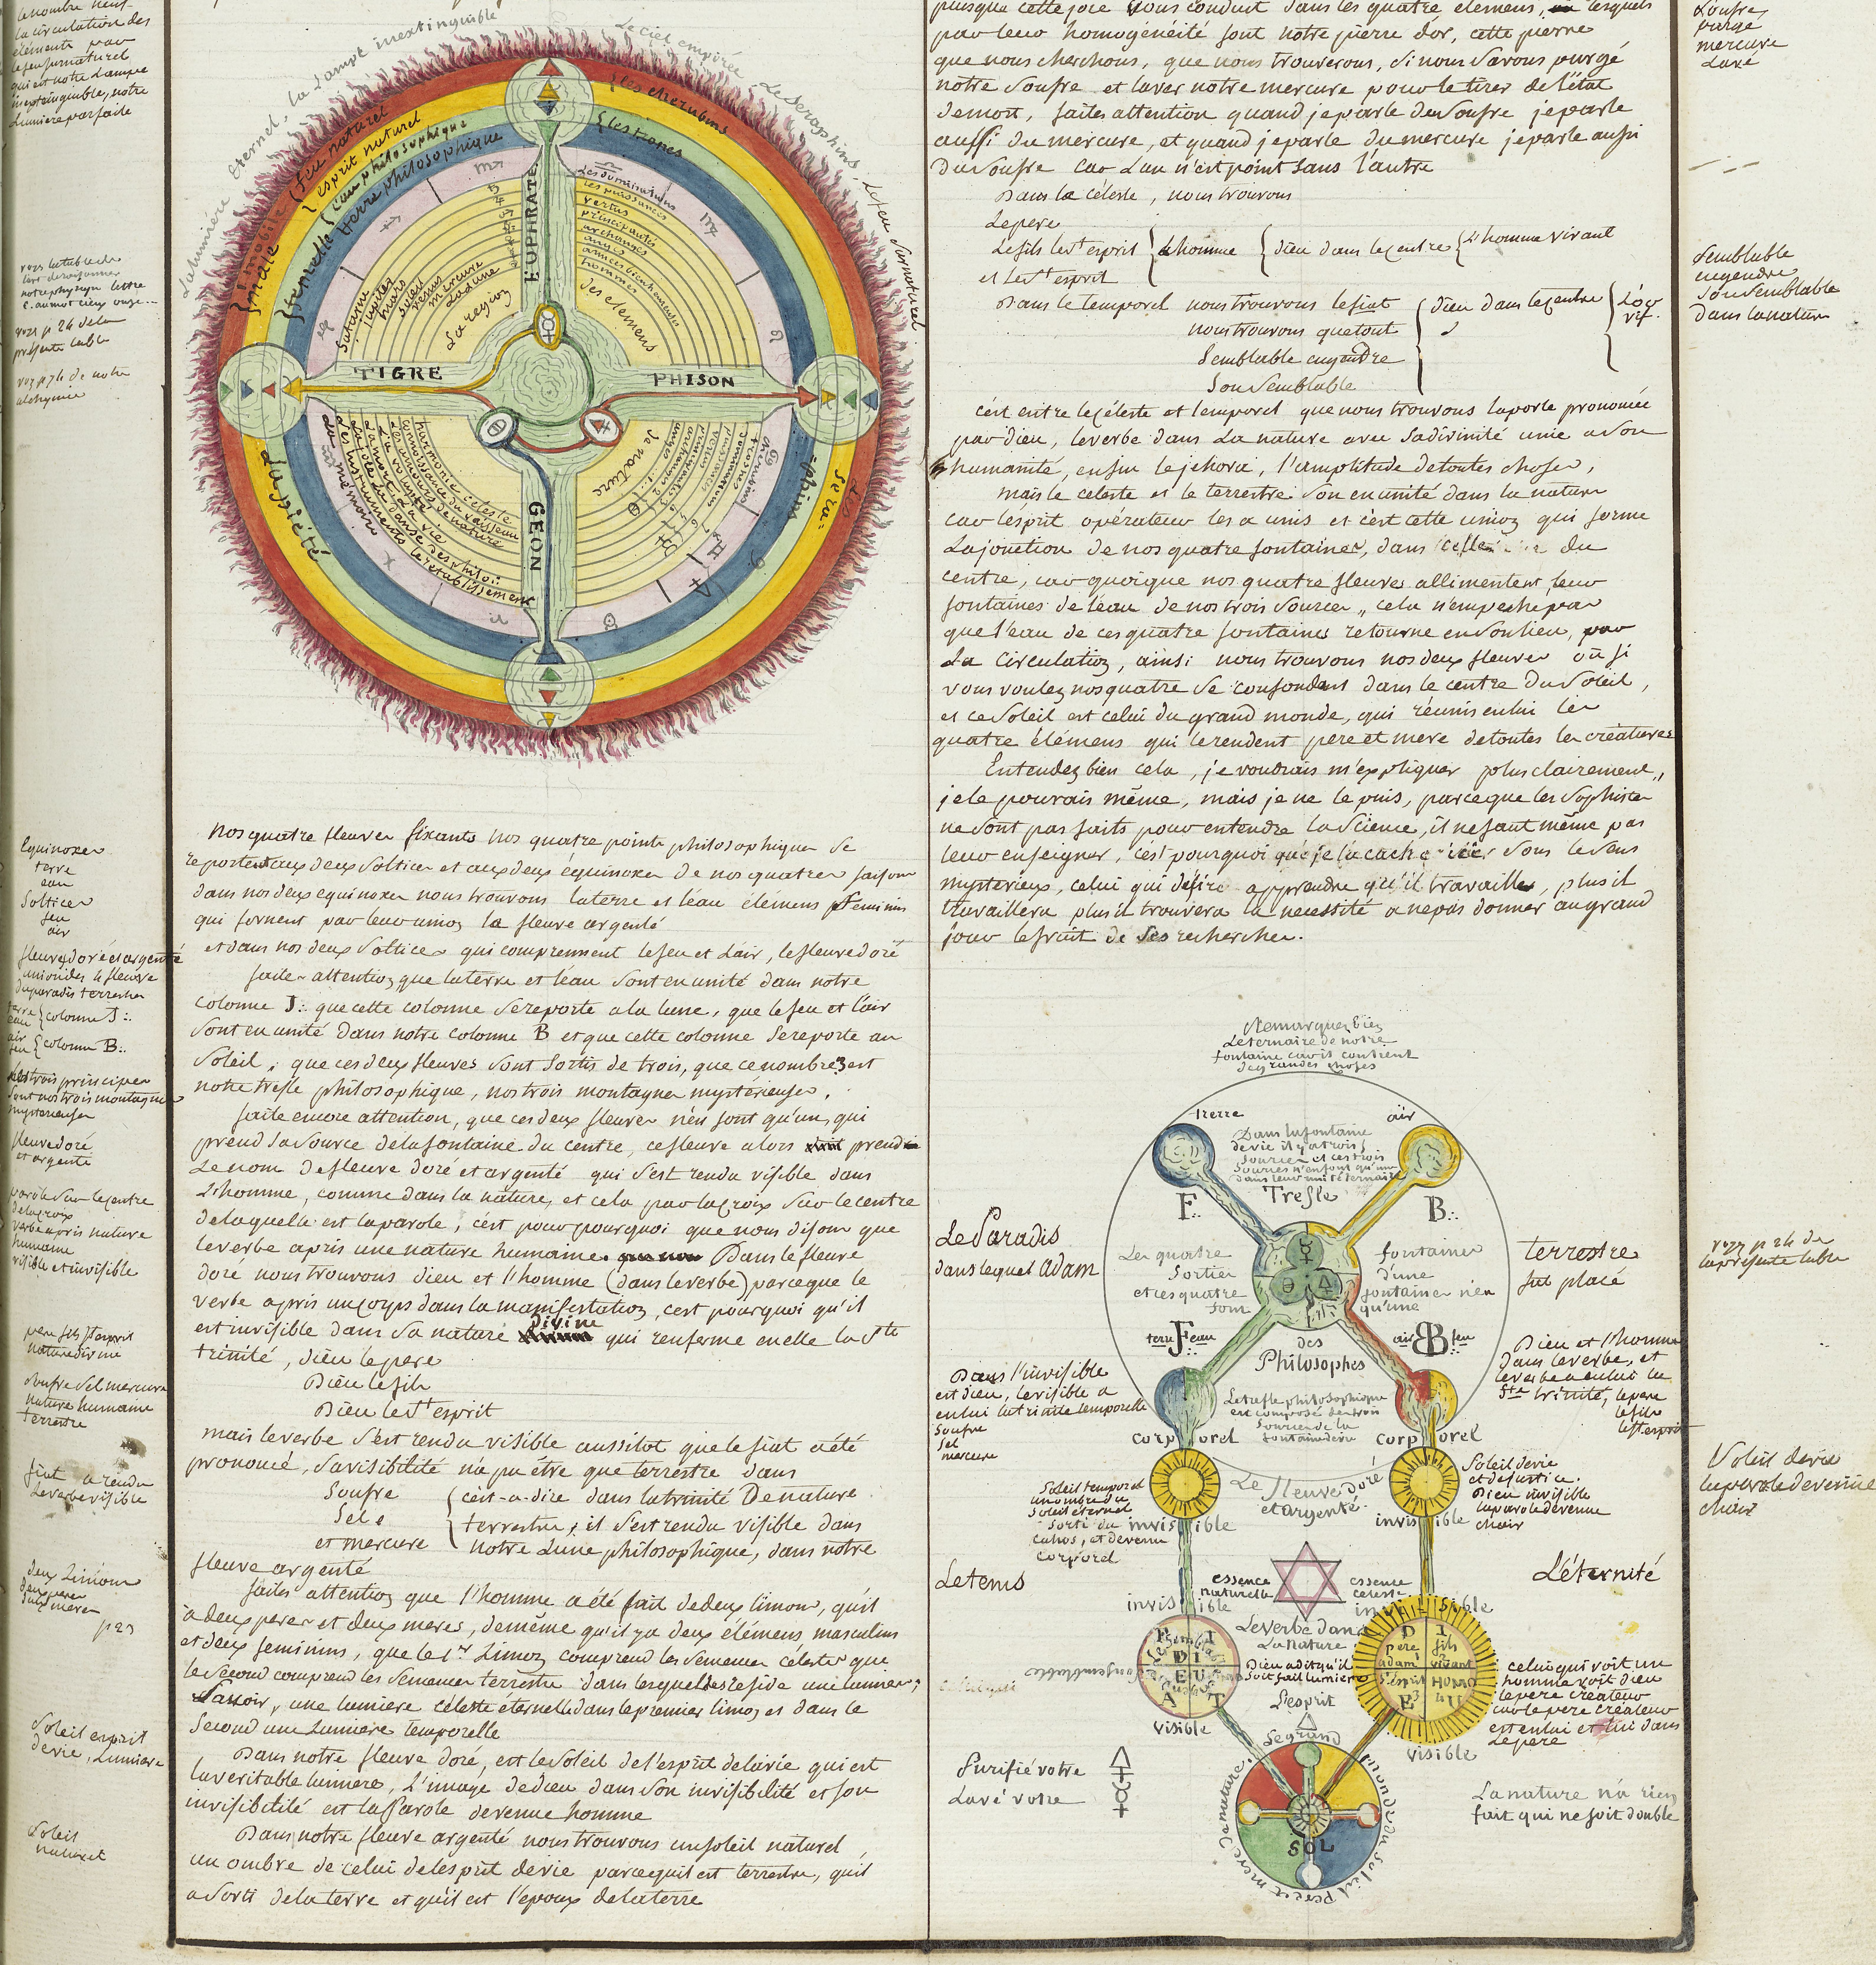 le nombre neuf
la circulation des
élémens par
le feu surnaturel
qui est notre Lampe
inextinguible, notre
Lumiere parfaite
voyz p 24 de la
présente table
voyz p 74 de notre
alchymie
Lalumiére éternel. la Lampe inextinguible
Le ciel empirée
Le Seraphins
Le feu Surnaturel
feu naturel
esprit naturel
l'eau philosophique
terre philosophique
mobile
mâle
femelle
les cherubins
les trones
Les dominations
les puissances
vertus
principautés
archanges
anges
ames bienheureuses
hommes
Ses elemens
Saturne
jupiter
mars
soleil
venus
mercure
La Lune
La region
EUPHRATE
TIGRE
PHISON
GEON
harmonie céleste
connoissance du vaisseau
Les amours de nature
La volupté
La mort La vie
La joie La danse des philo::
Les instruments L'établissement
La mémoire
la nature
La piété
Sera=
=phins
Nos quatre fleuves fixants nos quatre points philosophiques se
reportent aux deux Soltices et aux deux équinoxes de nos quatres saisons
dans nos deux equinoxes nous trouvons la terre et l'éau élémens feminins
qui forment par leur union le fleuve argenté
et dans nos deux Soltices qui comprennent le feu et L'air, le fleuve doré
faites attention que la terre et l'éau Sont en unité dans notre
colonne J:. que cette colonne Se reporte a la lune, que le feu et l'air
Sont en unité dans notre colonne B et que cette colonne Se reporte au
Soleil, que ces deux fleuves Sont Sortis de trois, que ce nombre 3 est
notre trefle philosophique, nos trois montagnes mystérieuses,
faite encore attention, que ces deux fleuves n'en font qu'un, qui
prend Sa Source de la fontaine du centre, ce fleuve alors prend
Le nom de fleuve doré et argenté qui S'est rendu visible dans
L'homme, comme dans la nature, et cela par la croix Sur le centre
de laquelle est la parole, c'est pourquoi que nous disons que
le verbe a pris une nature humaine. Dans le fleuve
doré nous trouvons Dieu et l'homme (dans le verbe) parceque le
verbe a pris un corps dans la manifestation, c'est pourquoi qu'il
est invisible dans Sa nature divine qui renferme en elle la Ste
trinité, Dieu le pere
Dieu le fils
Dieu le St esprit
mais le verbe S'est rendu visible aussitot que le fiat a été
prononcé, Sa visibilité n'a pu être que terrestre dans
Soufre
Sel
et mercure
c'est-a-dire dans la trinité De nature
terrestre, il S'est rendu visible dans
notre Lune philosophique, dans notre
fleuve argenté
faites attention que l'homme a été fait de deux limons, qu'il
a deux peres et deux meres, de même qu'il y a deux élémens masculins
et deux feminins, que le 1er Limon comprend les Semences célestes que
le Second comprend les Semences terrestre dans lesquelles réside une lumiere,
Savoir, une lumiere céleste éternelle dans le premier limon et dans le
Second une Lumiere temporelle
Dans notre fleuve doré, est le Soleil de l'esprit de la vie qui est
la veritable lumiere, L'image de dieu dans Son invisibilité et Son
invisibilité est la Parole devenue homme
Dans notre fleuve argenté nous trouvons un Soleil naturel
un ombre de celui de l'esprit de vie parcequ'il est terrestre, qu'il
a Sorti de la terre et qu'il est l'epoux de la terre
Equinoxes
terre
eau
Soltices
feu
air
fleuve doré et argenté
union des 4 fleuves
du paradis terrestre
terre
eau
colonne J:.
air
feu
colonne B:.
Les trois principes
Sont nos trois montagnes
mysterieuses
fleuve doré
et argenté
parole Sur le centre
de la croix
verbe a pris nature
humaine
visible et invisible
pere fils St esprit
nature divine
Soufre Sel mercure
nature humaine
terrestre
fiat a rendu
Le verbe visible
deux Limons
deux peres
deux meres
p 23
Soleil esprit
de vie, Lumiere
Soleil
naturel
puisque cette joie Vous conduit dans les quatre elemens, lesquels
par leur homogénéité font notre pierre d'or, cette pierre
que nous cherchons, que nous trouverons, Si nous Savons purgé
notre Soufre et laver notre mercure pour le tirer de l'état
de mort, faites attention quand je parle du Soufre je parle
aussi du mercure, et quand je parle du mercure je parle aussi
du Soufre car L'un n'est point Sans l'autre
Dans le céleste, nous trouvons
Le pere
Le fils Le St esprit
et Le St esprit
L'homme
Dieu dans le centre
L'homme vivant
Dans le temporel nous trouvons le fiat
nous trouvons que tout
Semblable engendre
Son Semblable
Dieu dans le centre
L'or
vif.
c'est entre le céleste et temporel que nous trouvons la parole prononcée
par dieu, le verbe dans La nature avec Sa divinité unie a Son
humanité, enfin le jehova, l'amplitude de toutes choses,
mais le celeste et le terrestre Son en unité dans la nature
car l'esprit opérateur les a unis et c'est cette union qui forme
La jonction de nos quatre fontaines, dans celle du
centre, car quoique nos quatre fleuves allimentent leur
fontaines de l'éau de nos trois Sources, cela n'empeche pas
que l'eau de ces quatre fontaines retourne en Son lieu, par
La circulation, ainsi nous trouvons nos deux fleuves où Si
vous voulez nos quatre Se confondent dans le centre du Soleil,
et ce Soleil est celui du grand monde, qui réunis en lui les
quatre élémens qui le rendent pere et mere de toutes les créatures
Entendez bien cela, je voudrais m'expliquer plus clairement,
je le pourais même, mais je ne le puis, parceque les Sophistes
ne Sont pas faits pour entendre la Science, il ne faut même pas
leur enseigner, c'est pourquoi que je la cache Sous le Sens
mysterieux, celui qui désire apprendre qu'il travaille, plus il
travaillera plus il trouvera la necessité a ne pas donner au grand
jour le fruit de Ses recherches.
Soufre
purgé
mercure
Lavé
Semblable
engendre
Son Semblable
dans la nature
voyz p 24 de
la présente table
Soleil de vie
la parole devenue
chair
Remarquez bien
Le ternaire de notre
fontaine car il contient
de grandes choses
terre
air
Dans la fontaine
de vie il y a trois
Sources et ces trois
Sources n'en font qu'une
dans leur unité ternaire
Trefle
F:.
B:.
Le Paradis
dans lequel Adam
terrestre
fut placé
Les quatre
Sorties
et ces quatre
Sont
fontaines
d'une
fontaine n'en
qu'une
des
Philosophes
terre J eau
air B feu
Le trefle philosophique
est composé de trois
Sources de la
fontaine de vie
Dans l'invisible
est dieu, le visible a
en lui la trinité temporelle
Soufre
Sel
mercure
Dieu et l'homme
dans le verbe, et
le verbe a en lui la
Ste trinité, le pere
le fils
le St esprit
corporel
corporel
Soleil temporel
un ombre du
Soleil éternel
Sorti du
cahos, et devenu
corporel
Le fleuve doré
et argenté
Soleil de vie
et de justice.
Dieu invisible
la parole devenue
chair
invisible
invisible
Le tems
L'éternité
essence
naturelle
essence
celeste
invisible
invisible
Le verbe dans
La nature
Dieu a dit qu'il
Soit fait lumiere
L'esprit
F I
DI
EU
A T
D I
pere
fils
adam
vivant
St esprit
HOMO
E U
visible
visible
celui qui voit un
homme voit dieu
le pere créateur
car le pere créateur
est en lui et lui dans
Le pere
Purifié votre
Lavé votre
Le grand
monde du soleil pere et mere de nature
SOL
La nature n'a rien
fait qui ne soit double